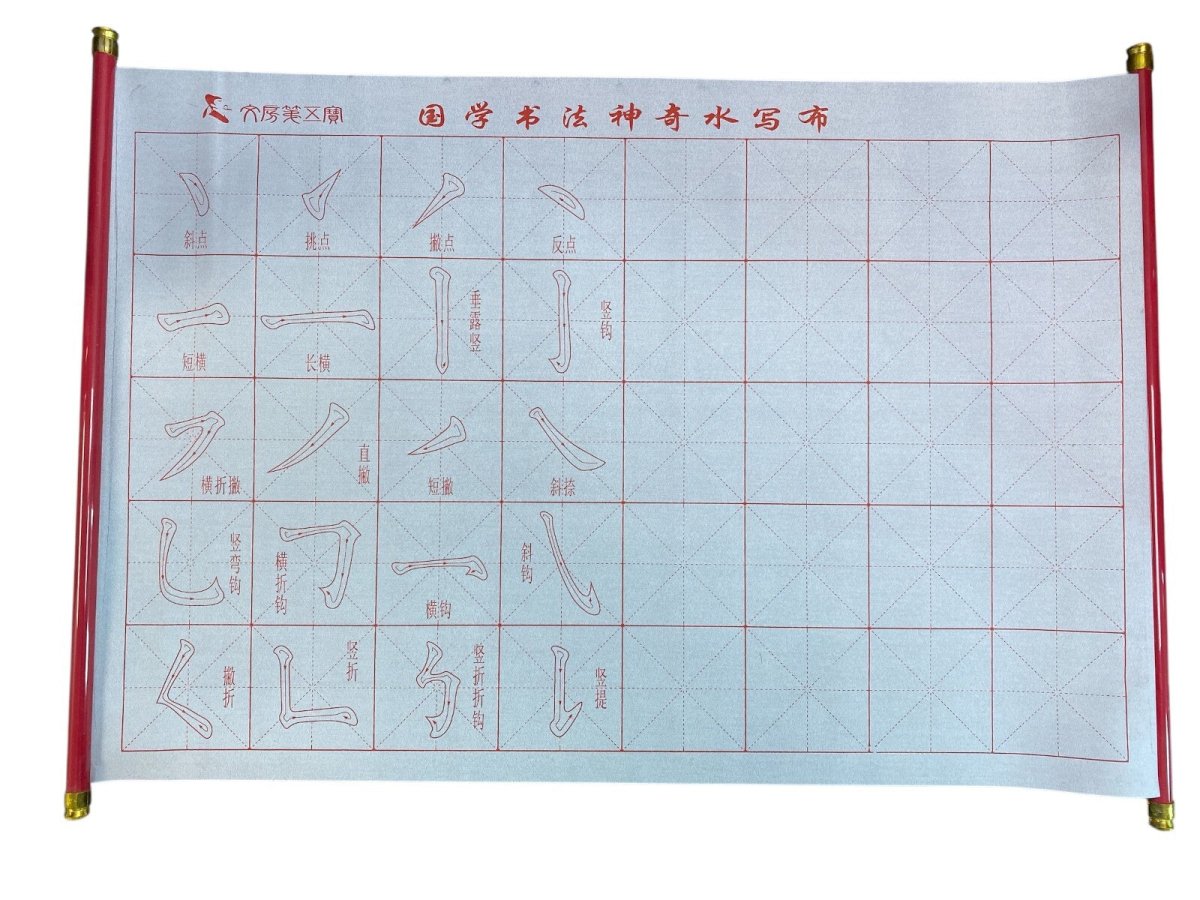 文房笔五寶
国学书法神奇水写布
斜点
挑点
撇点
反点
短横
长横
垂露竖
竖钩
横折撇
直撇
短撇
斜捺
竖弯钩
横折钩
横钩
斜钩
撇折
竖折
竖折折钩
竖提